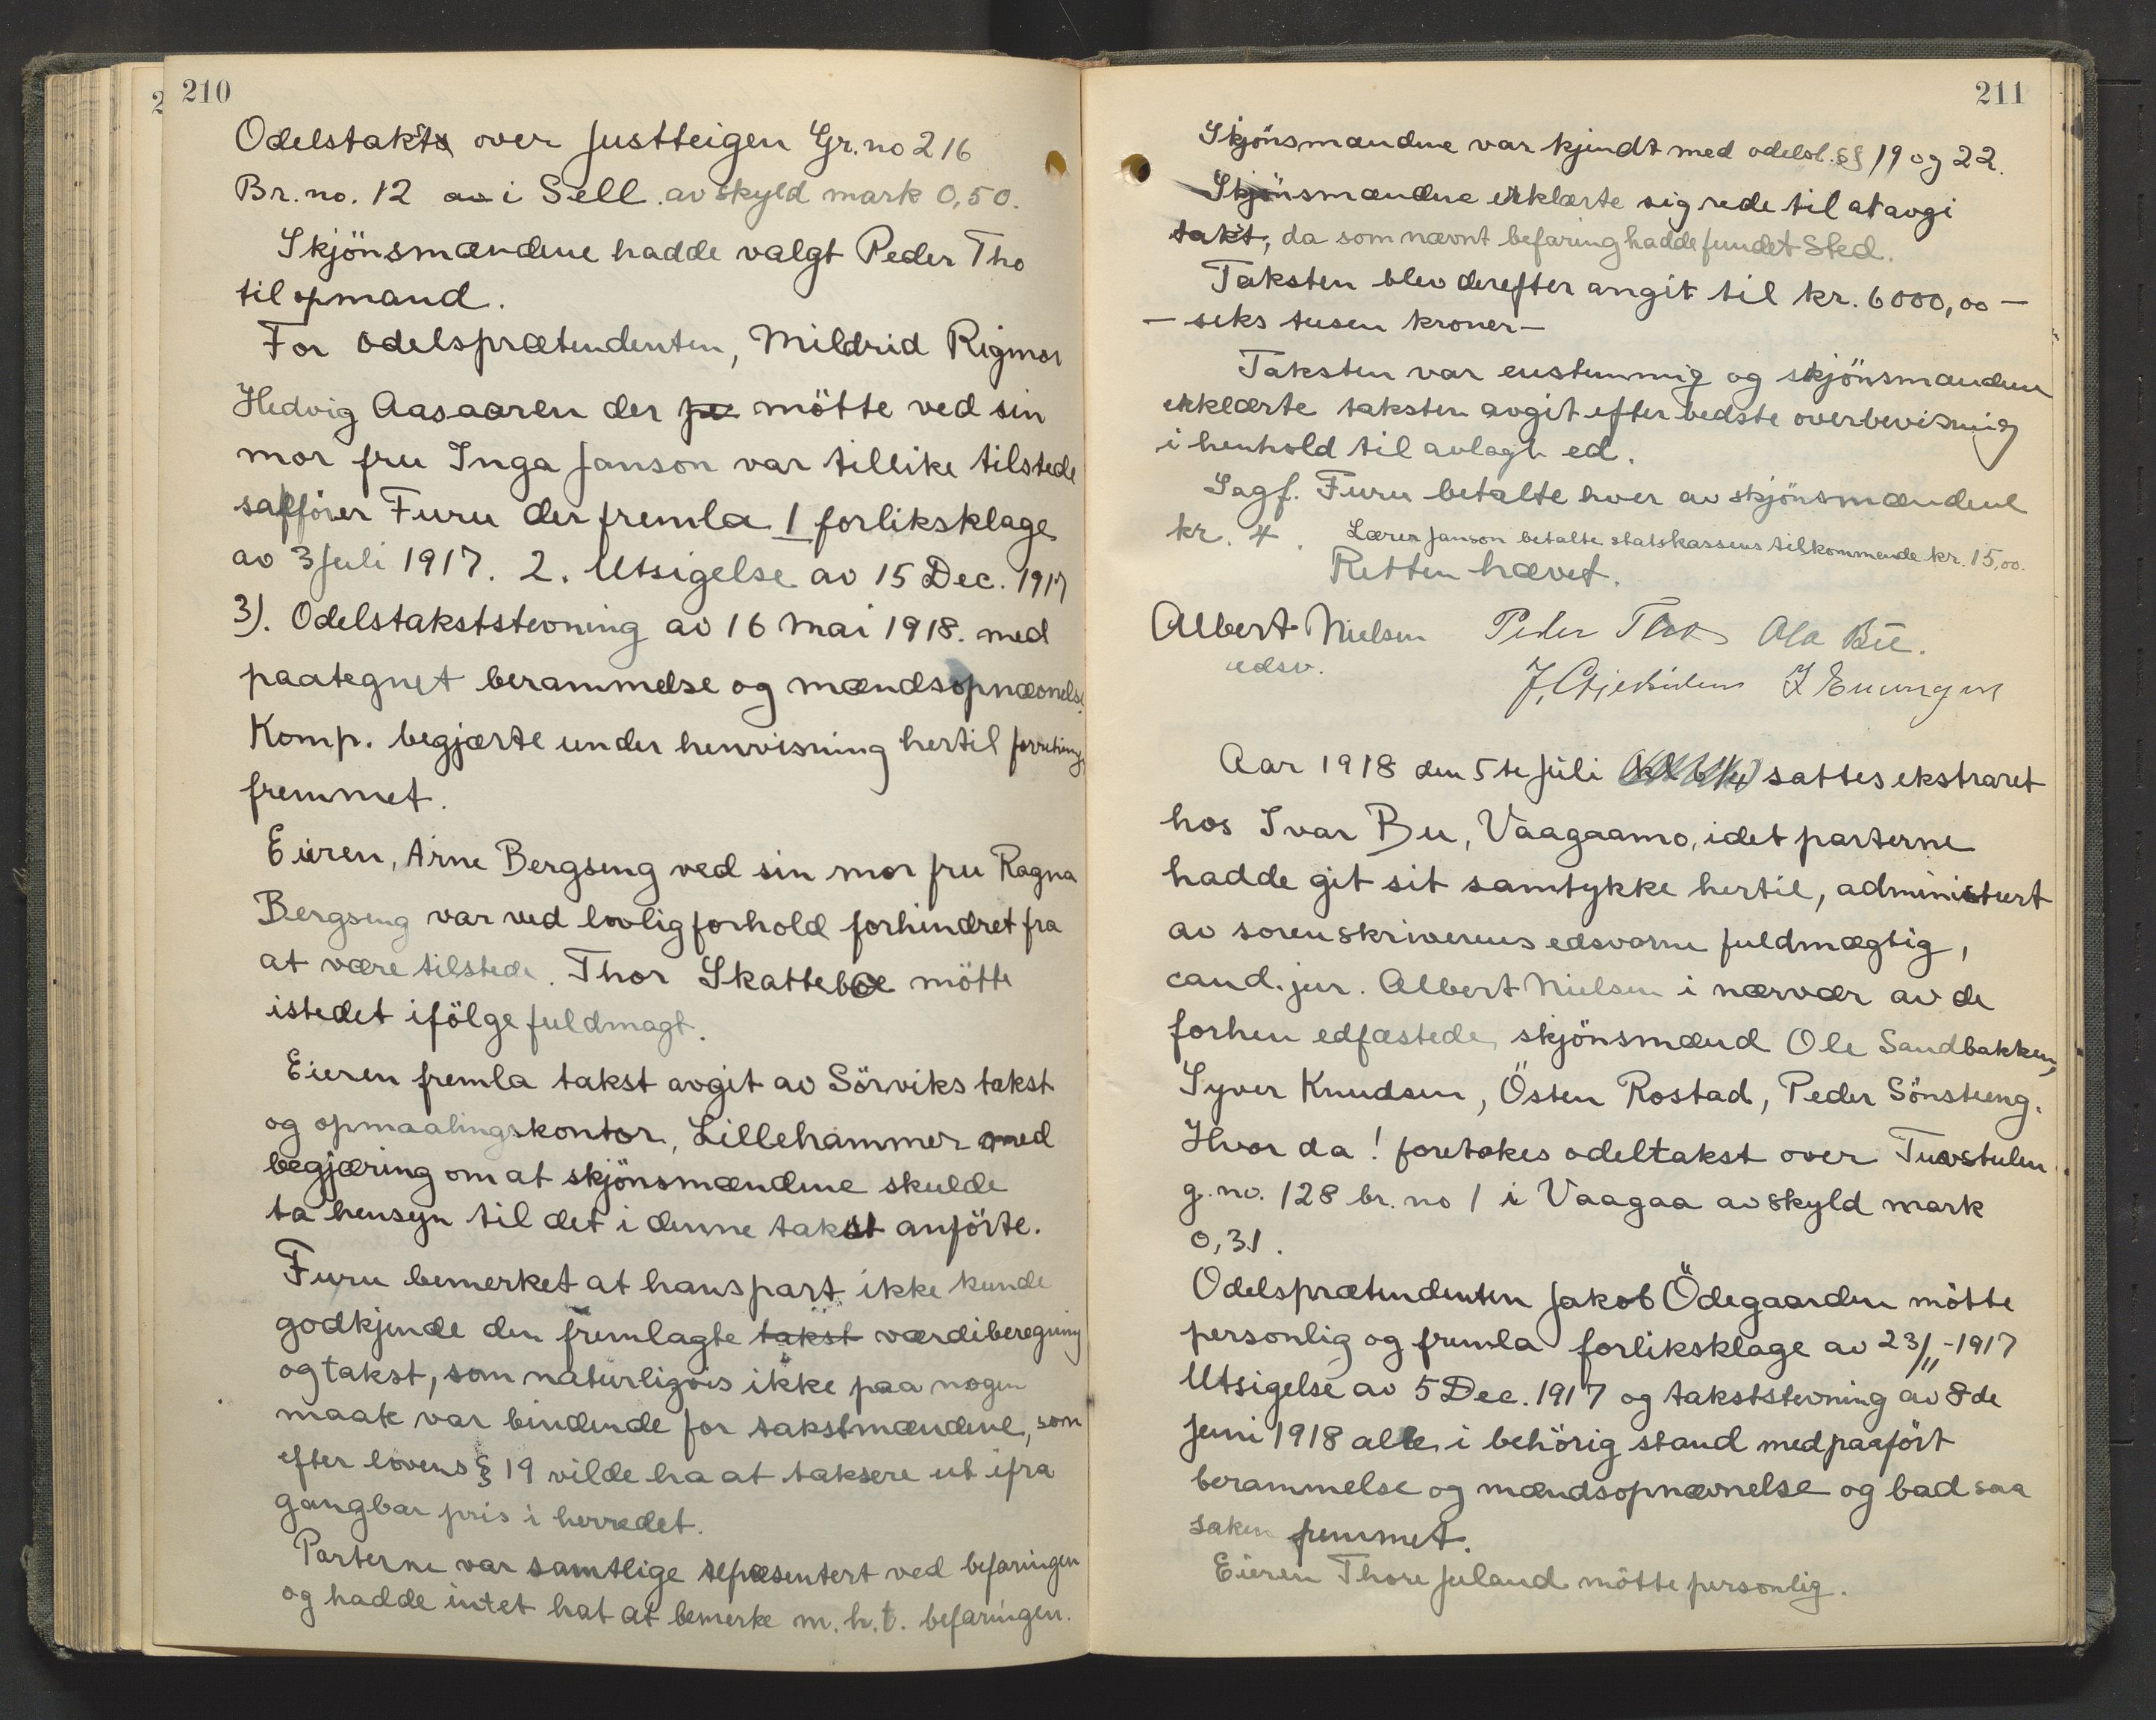 210
Odelstakst over Justteigen Gr. no 216
Br. no. 12 i Sell. av skyld mark 0,50.
Skjönsmændene hadde valgt Peder Tho
til opmand.
For odelsprætendenten, Mildrid Rigmor
Hedvig Aasaaren der mötte ved sin
mor fru Inga Janson var tillike tilstede
sakförer Furu der fremla 1 forliksklage
av 3 Juli 1917. 2. Utsigelse av 15 Dec. 1917
3). Odelstakststevning av 16 Mai 1918. med
paategnet berammelse og mændsopnævnelse.
Komp. begjærte under henvisning hertil forretning
fremmet.
Eieren, Arne Bergseng ved sin mor fru Ragna
Bergseng var ved lovlig forhold forhindret fra
at være tilstede. Thor Skatteboe mötte
istedet ifölge fuldmagt.
Eieren fremla takst avgit av Sörviks takst
og opmaalingskontor, Lillehammer med
begjæring om at skjönsmændene skulde
ta hensyn til det i denne takst anförte.
Furu bemerket at hans part ikke kunde
godkjende den fremlagte takst værdiberegning
og takst, som naturligvis ikke paa nogen
maate var bindende for takstmændene, som
efter lovens § 19 vilde ha at taksere ut ifra
gangbar pris i herredet.
Parterne var samtlige repræsentert ved befaringen
og hadde intet hat at bemerke m. h. t. befaringen.
211
Skjönsmændene var kjendt med odelsl. §§ 19 og 22.
Skjönsmændene erklærte sig rede til at avgi
takst, da som nævnt befaring hadde fundet Sted.
Taksten blev derefter angit til kr. 6000,00 —
— seks tusen kroner —
Taksten var enstemmig og skjönsmændene
erklærte taksten avgit efter bedste overbevisning
i henhold til avlagt ed.
Sagf. Furu betalte hver av skjönsmændene
kr. 4. Lærer Janson betalte statskassens tilkommende kr. 15,00.
Retten hævet.
Albert Nielsen Peder Tho Ola Bu.
edsv.
Aar 1918 den 5te Juli sattes ekstraret
hos Ivar Bu, Vaagaamo, idet parterne
hadde git sit samtykke hertil, administrert
av sorenskriverens edsvorne fuldmægtig,
cand. jur. Albert Nielsen i nærvær av de
forhen edfæstede skjönsmænd Ole Sandbakken,
Syver Knudsen, Östen Rostad, Peder Sönsteeng.
Hvor da! foretokes odeltakst over Tuvstulen
g. no. 128 br. no 1 i Vaagaa av skyld mark
0,31.
Odelsprætendenten Jakob Ödegaarden mötte
personlig og fremla forliksklage av 23/11-1917
Utsigelse av 5 Dec. 1917 og takststevning av 8de
Juni 1918 alle i behörig stand med paafört
berammelse og mændsopnævnelse og bad saa
saken fremmet.
Eieren Thore Juland mötte personlig.